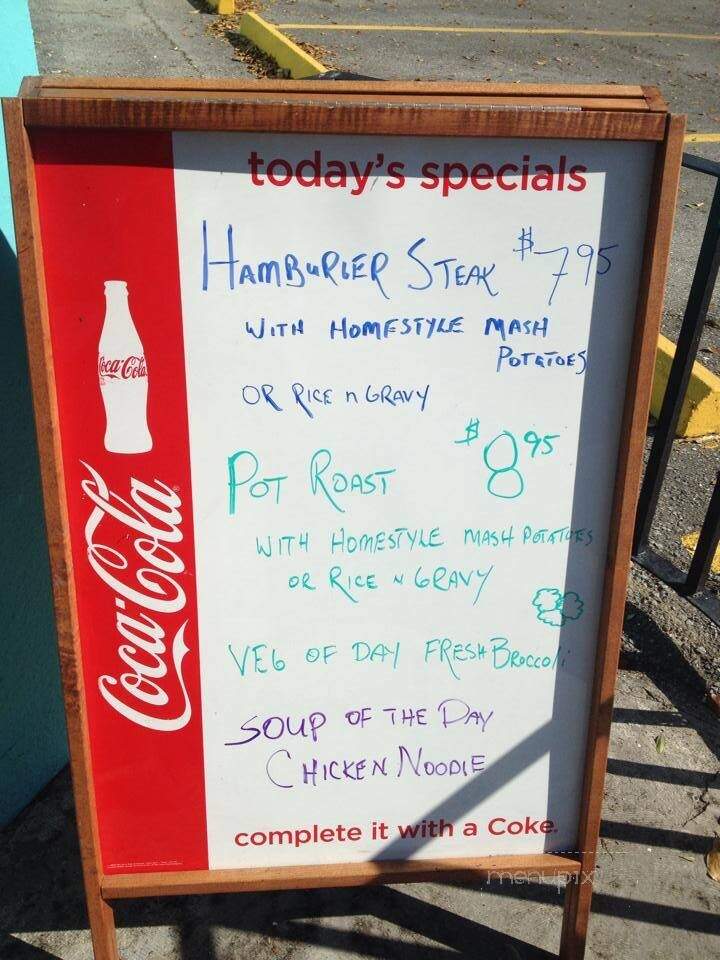 today's specials
HAMBURGER STEAK $7.95
WITH HOMESTYLE MASH
POTATOES
OR RICE n GRAVY
POT ROAST $8.95
WITH HOMESTYLE MASH POTATOES
OR RICE N GRAVY
VEG OF DAY FRESH BROCCOLI
SOUP OF THE DAY
CHICKEN NOODLE
complete it with a Coke.
Coca-Cola
Coca-Cola
menupix